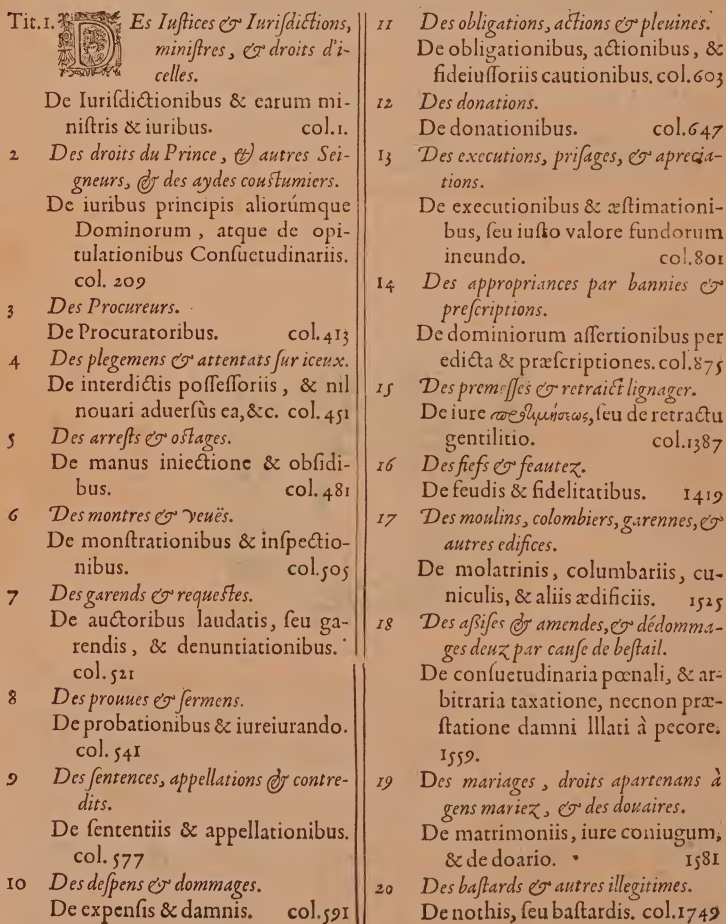 Tit.1. DEs Iuſtices & Iuriſdictions,
miniſtres, & droits d'i-
celles.
De Iuriſdictionibus & earum mi-
niſtris & iuribus. col.1.
2 Des droits du Prince, & autres Sei-
gneurs, & des aydes couſtumiers.
De iuribus principis aliorúmque
Dominorum, atque de opi-
tulationibus Conſuetudinariis.
col. 209
3 Des Procureurs.
De Procuratoribus. col.413
4 Des plegemens & attentats ſur iceux.
De interdictis poſſeſſoriis, & nil
nouari aduerſùs ea,&c. col.451
5 Des arreſts & oſtages.
De manus iniectione & obſidi-
bus. col.481
6 Des montres & veuës.
De monſtrationibus & inſpectio-
nibus. col.505
7 Des garends & requeſtes.
De auctoribus laudatis, ſeu ga-
rendis, & denuntiationibus.
col. 521
8 Des prouues & ſermens.
De probationibus & iureiurando.
col. 541
9 Des ſentences, appellations & contre-
dits.
De ſententiis & appellationibus.
col. 577
10 Des deſpens & dommages.
De expenſis & damnis. col.591
11 Des obligations, actions & pleuines.
De obligationibus, actionibus, &
fideiuſſoriis cautionibus. col.603
12 Des donations.
De donationibus. col.647
13 Des executions, priſages, & aprecia-
tions.
De executionibus & æſtimationi-
bus, ſeu iuſto valore fundorum
ineundo. col.801
14 Des appropriances par bannies &
preſcriptions.
De dominiorum aſſertionibus per
edicta & præſcriptiones. col.875
15 Des premeſſes & retraict lignager.
De iure προτιμήσεως, ſeu de retractu
gentilitio. col.1387
16 Des fiefs & feautez.
De feudis & fidelitatibus. 1419
17 Des moulins, colombiers, garennes, &
autres edifices.
De molatrinis, columbariis, cu-
niculis, & aliis ædificiis. 1525
18 Des aßiſes & amendes, & dédomma-
ges deuz par cauſe de beſtail.
De conſuetudinaria pœnali, & ar-
bitraria taxatione, necnon præ-
ſtatione damni Illati à pecore.
1559.
19 Des mariages, droits apartenans à
gens mariez, & des douaires.
De matrimoniis, iure coniugum,
& de doario. 1581
20 Des baſtards & autres illegitimes.
De nothis, ſeu baſtardis. col.1749